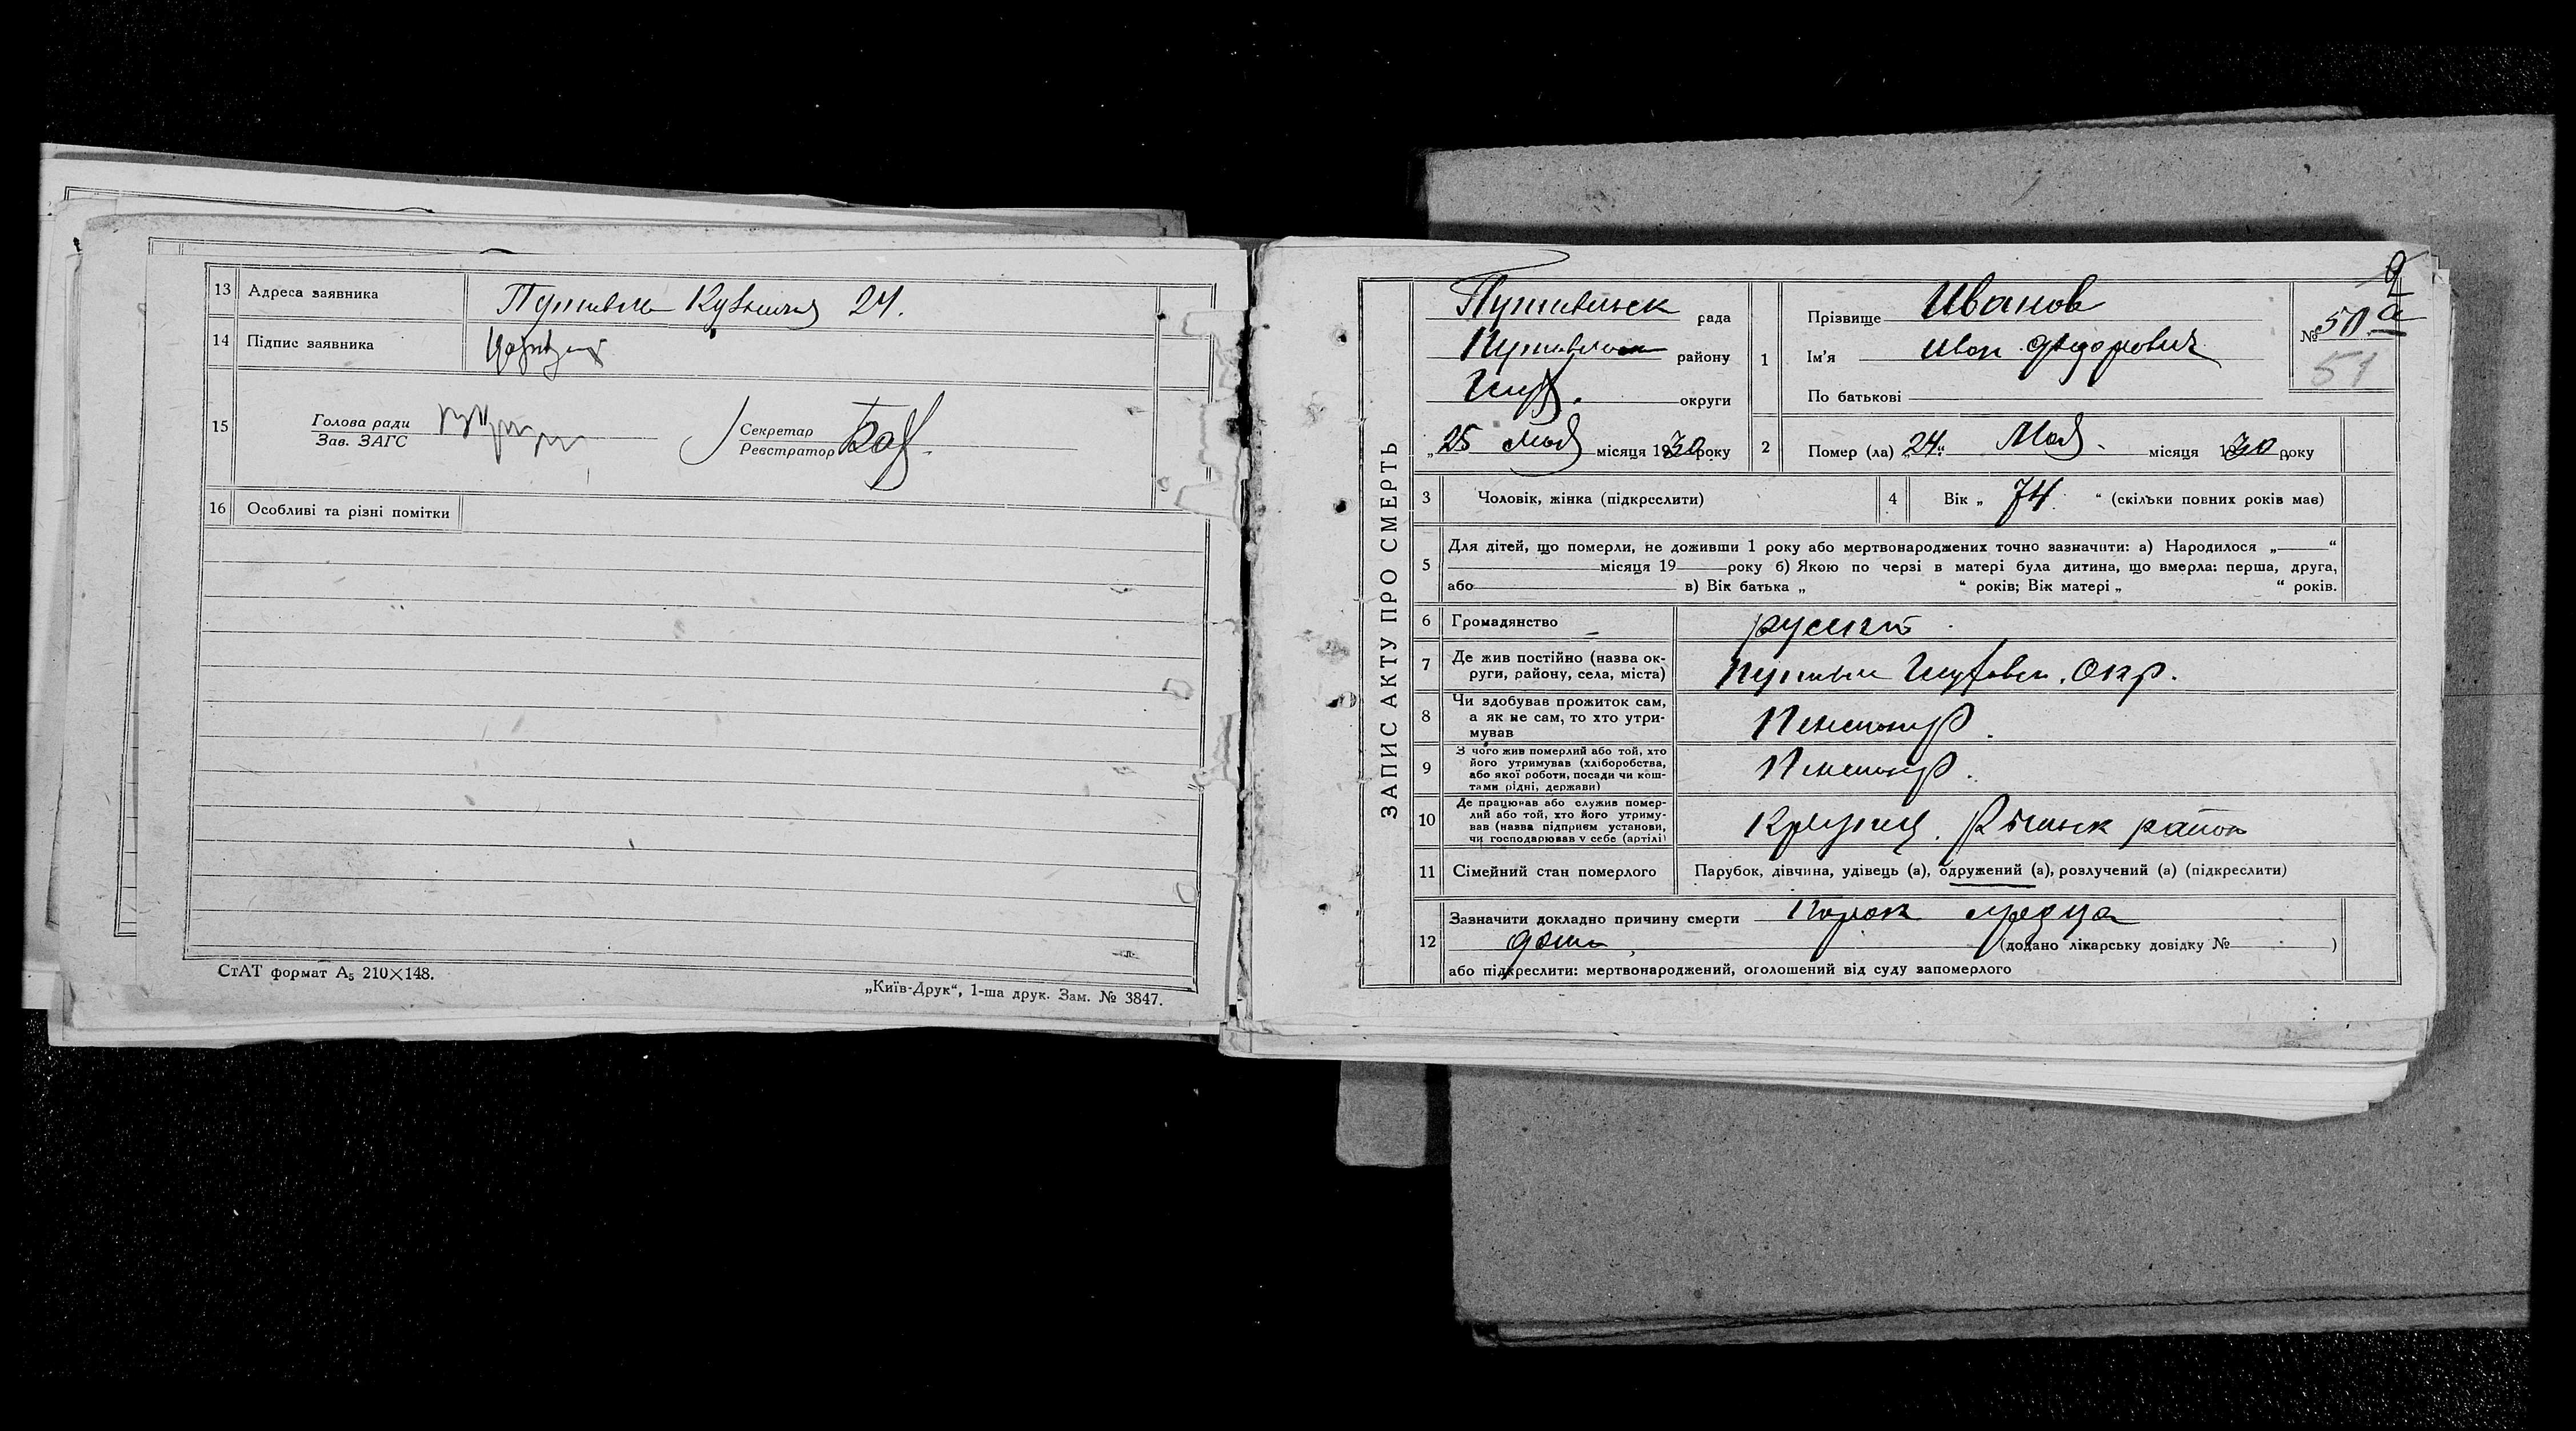 13 Адреса заявника Путивль Кузнечная 24.
14 Підпис заявника
15 Голова ради
Зав. ЗАГС
Секретар
Реєстратор
16 Особливі та різні помітки
СтАТ формат А5 210×148.
„Київ-Друк“, 1-ша друк. Зам. № 3847.
ЗАПИС АКТУ ПРО СМЕРТЬ
Путивльск рада
Путивльск району
округи
„25 Мая місяця 1930 року
1 Прізвище Иванов
Ім'я Иван Федорович
По батькові
№ 50 а
51
2 Помер (ла) „24“ Мая місяця 1930 року
3 Чоловік, жінка (підкреслити)
4 Вік „ 74 “ (скільки повних років має)
5 Для дітей, що померли, не доживши 1 року або мертвонароджених точно зазначити: а) Народилося „ “
місяця 19 року б) Якою по черзі в матері була дитина, що вмерла: перша, друга,
або в) Вік батька „ “ років; Вік матері „ “ років.
6 Громадянство русский
7 Де жив постійно (назва ок-
руги, району, села, міста) Путивль Глуховск. Окр.
8 Чи здобував прожиток сам,
а як не сам, то хто утри-
мував Пенсионер.
9 З чого жив померлий або той, хто
його утримував (хліборобства,
або якої роботи, посади чи кош-
тами рідні, держави) Пенсионер.
10 Де працював або служив помер-
лий або той, хто його утриму-
вав (назва підприєм установи,
чи господарював у себе (артілі) район
11 Сімейний стан померлого Парубок, дівчина, удівець (а), одружений (а), розлучений (а) (підкреслити)
12 Зазначити докладно причину смерти Порок сердца
(додано лікарську довідку № )
або підкреслити: мертвонароджений, оголошений від суду запомерлого